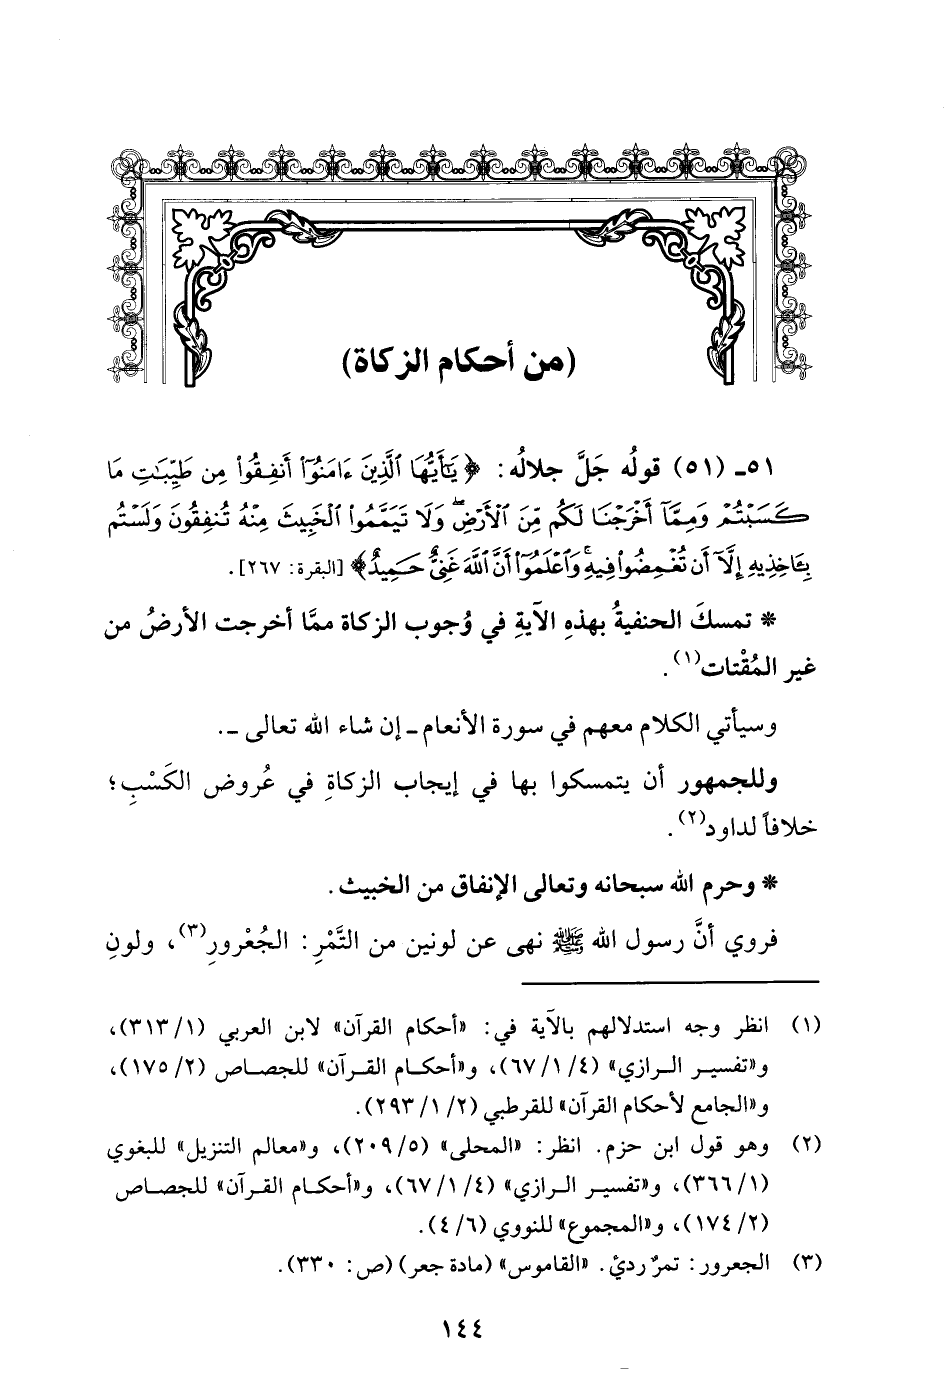 (من أحكام الزكاة)
٥١ـ (٥١) قولُه جَلَّ جلالُه: ﴿يَٰٓأَيُّهَا ٱلَّذِينَ ءَامَنُوٓا۟ أَنفِقُوا۟ مِن طَيِّبَٰتِ مَا
كَسَبْتُمْ وَمِمَّآ أَخْرَجْنَا لَكُم مِّنَ ٱلْأَرْضِ ۖ وَلَا تَيَمَّمُوا۟ ٱلْخَبِيثَ مِنْهُ تُنفِقُونَ وَلَسْتُم
بِـَٔاخِذِيهِ إِلَّآ أَن تُغْمِضُوا۟ فِيهِ ۚ وَٱعْلَمُوٓا۟ أَنَّ ٱللَّهَ غَنِىٌّ حَمِيدٌ﴾ [البقرة: ٢٦٧].
* تمسكَ الحنفيةُ بهذهِ الآيةِ في وُجوب الزكاة ممَّا أخرجت الأرضُ من
غير المُقْتات(١).
وسيأتي الكلام معهم في سورة الأنعام ـ إن شاء الله تعالى ـ.
وللجمهور أن يتمسكوا بها في إيجاب الزكاةِ في عُروض الكَسْبِ؛
خلافاً لداود(٢).
* وحرم الله سبحانه وتعالى الإنفاق من الخبيث.
فروي أنَّ رسول الله ﷺ نهى عن لونين من التَّمْرِ: الجُعْرورِ(٣)، ولونِ
(١) انظر وجه استدلالهم بالآية في: «أحكام القرآن» لابن العربي (١/ ٣١٣)،
و«تفسير الرازي» (٤/ ١/ ٦٧)، و«أحكام القرآن» للجصاص (٢/ ١٧٥)،
و«الجامع لأحكام القرآن» للقرطبي (٢/ ١/ ٢٩٣).
(٢) وهو قول ابن حزم. انظر: «المحلى» (٥/ ٢٠٩)، و«معالم التنزيل» للبغوي
(١/ ٣٦٦)، و«تفسير الرازي» (٤/ ١/ ٦٧)، و«أحكام القرآن» للجصاص
(٢/ ١٧٤)، و«المجموع» للنووي (٦/ ٤).
(٣) الجعرور: تمرٌ رديْ. «القاموس» (مادة جعر) (ص: ٣٣٠).
١٤٤